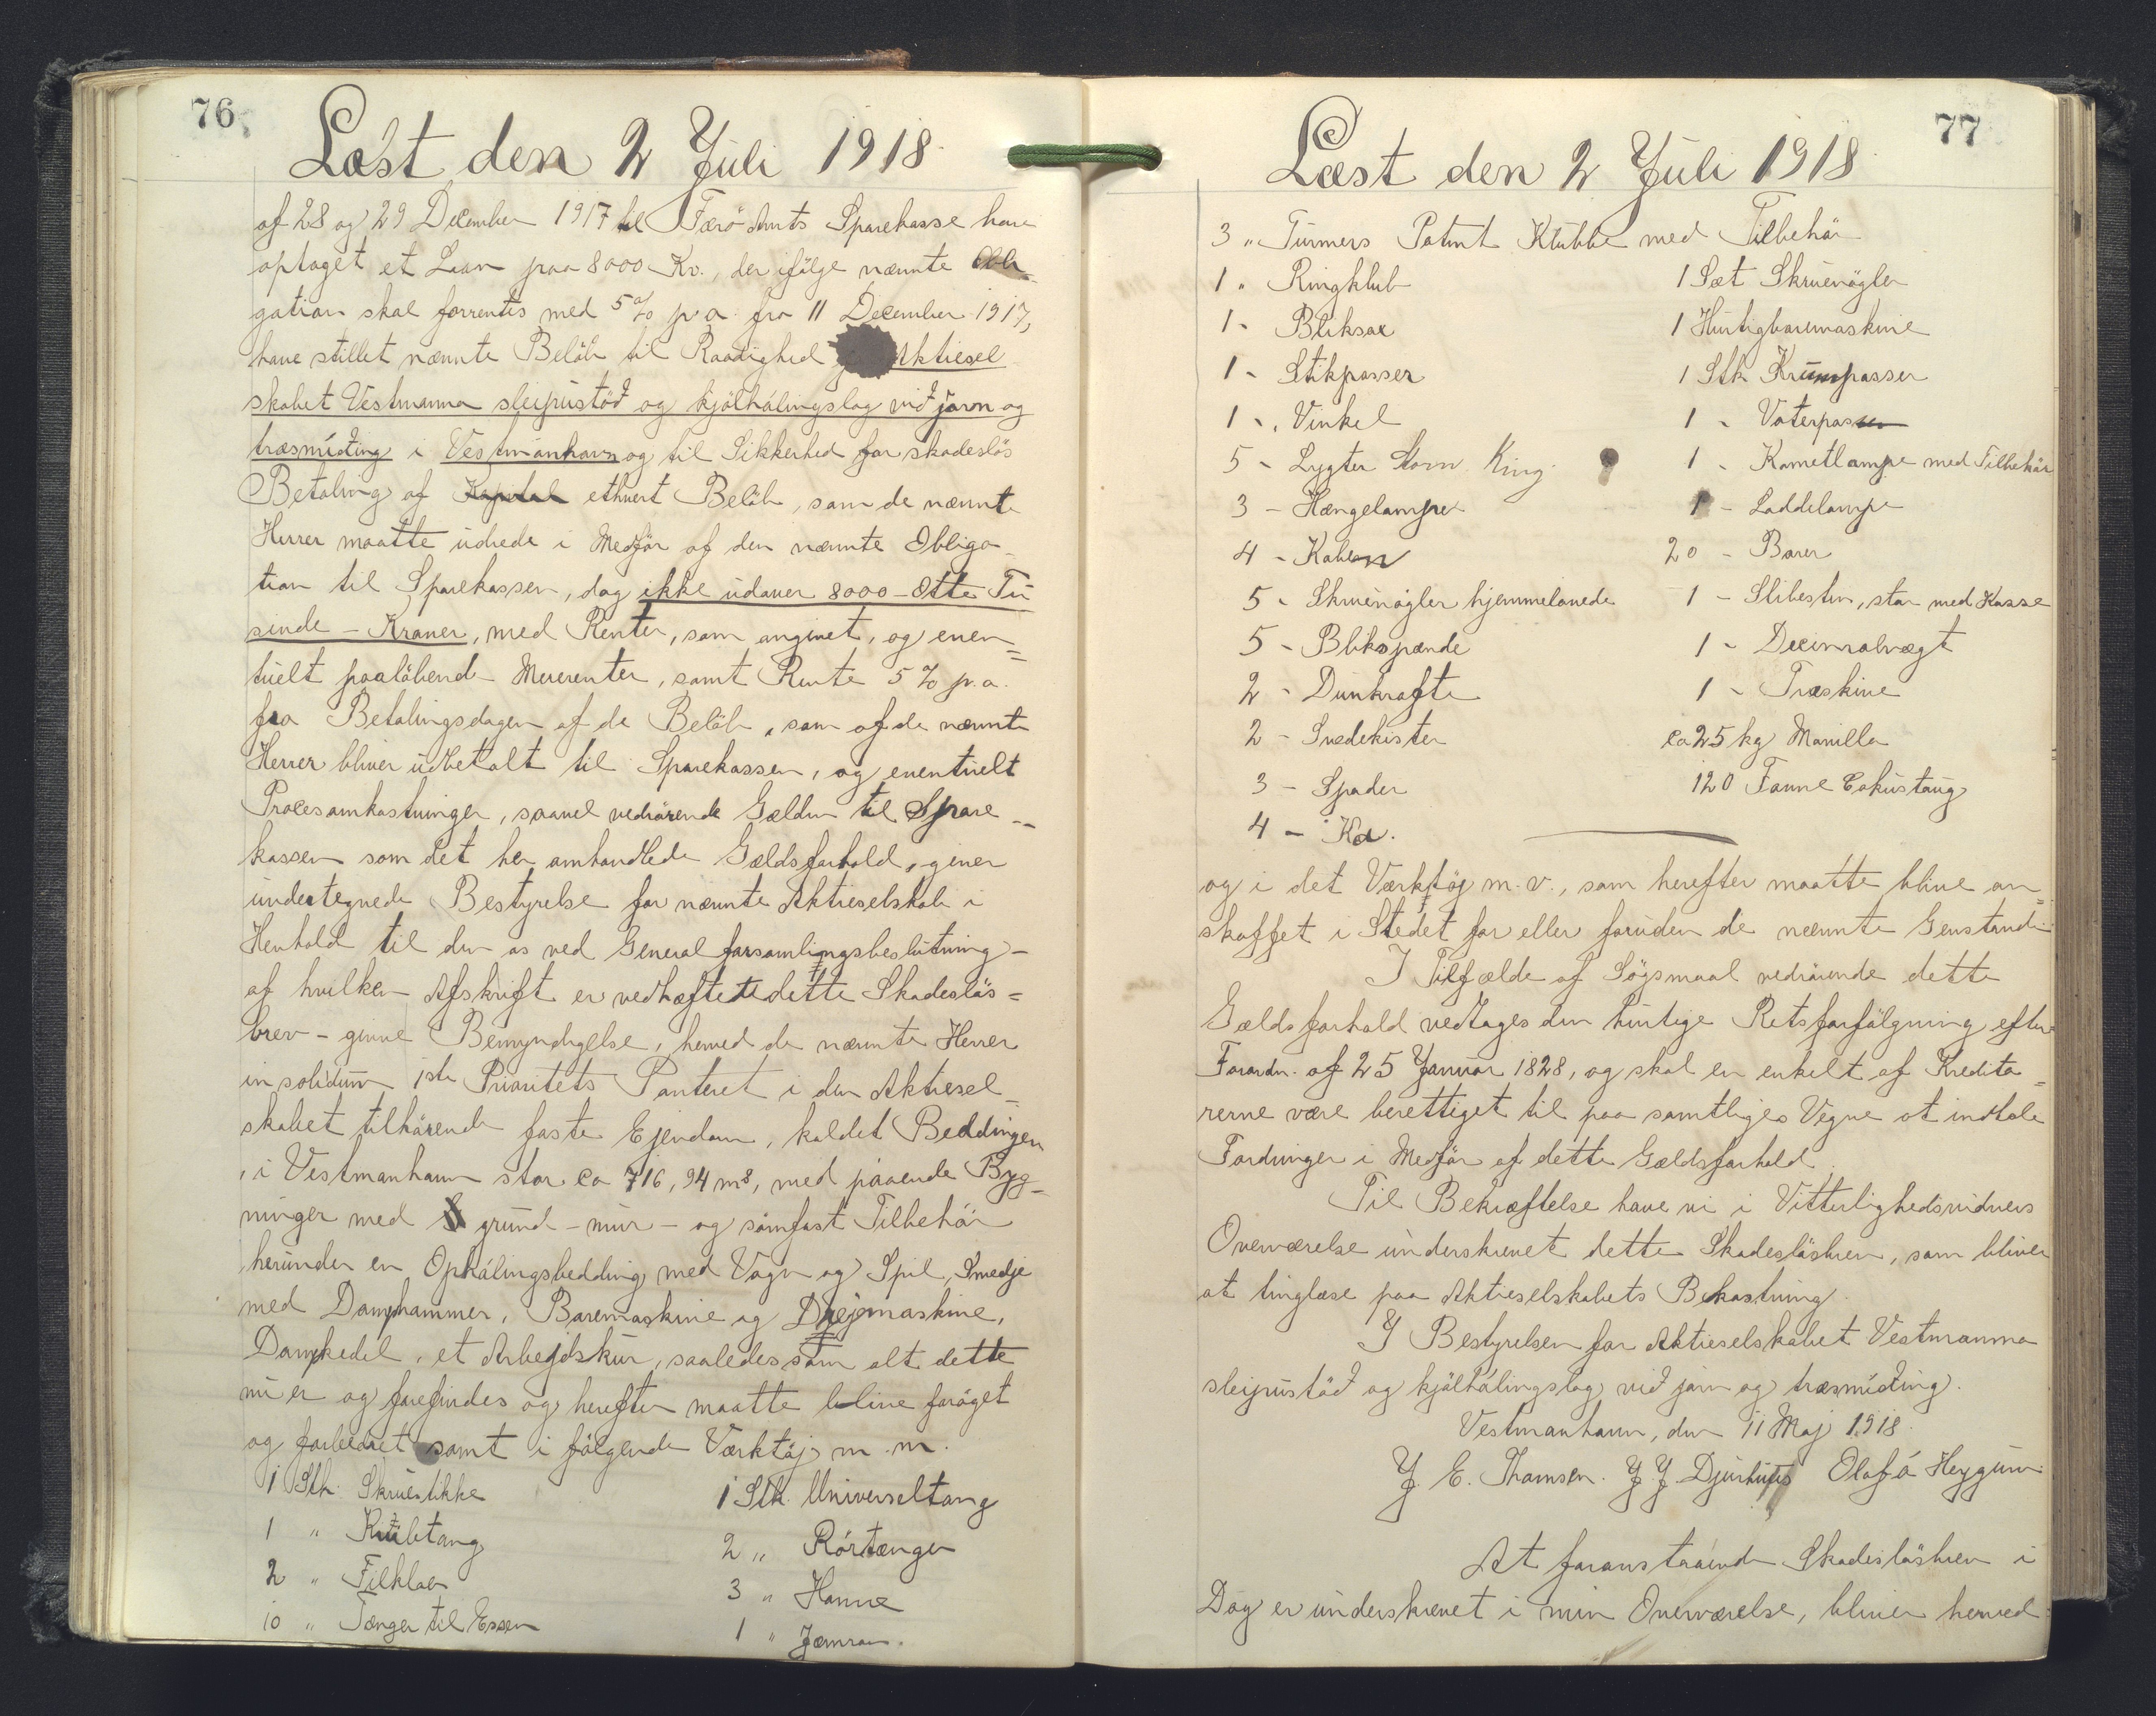 76
Læst den 2 Juli 1918.
af 28 og 29 December 1917 til Færö Amts Sparekasse have
optaget et Laan paa 8000 Kr., der ifölge nævnte Obli-
gation skal forrentes med 5 % p.a. fra 11 December 1917,
have stillet nævnte Belöb til Raadighed Aktiesel
skabet Vestmanna sleipistöð og kjölhálingslag við jarn og
træsmíðing i Vestmanhavn og til Sikkerhed for skadeslös
Betaling af Kapital ethvert Belöb, som de nævnte
Herrer maatte udrede i Medför af den nævnte Obliga-
tion til Sparekassen, dog ikke udover 8000 - Otte Tu
sinde - Kroner, med Renter, som angivet, og even=
tuelt paalöbende Merrenter, samt Rente 5 % p.a.
fra Betalingsdagen af de Belöb, som af de nævnte
Herrer bliver udbetalt til Sparekassen, og eventuelt
Procesomkostninger, saavel vedrörende Gælden til Spare-
kassen som det her omhandlede Gældsforhold, giver
undertegnede Bestyrelse for nævnte Aktieselskab i
Henhold til den os ved Generalforsamlingsbeslutning -
af hvilken Afskrift er vedhæftet dette Skadeslös=
brev - givne Bemyndigelse, herved de nævnte Herrer
in solidum 1ste Prioritets Panteret i den Aktiesel=
skabet tilhörende faste Ejendom, kaldet Beddingen
, i Vestmanhavn stor ca 716,94 m², med paaværende Byg-
ninger med grund- mur- og sömfast Tilbehör
herunder en Ophálingsbedding med Vogn og Spil, Smedje
med Damphammer, Boremaskine og Drejemaskine,
Dampkedel, et Arbejdskur, saaledes som alt dette
nu er og forefindes og herefter maatte blive foröget
og forbedret samt i fölgende Værktöj m.m.
1 Stk. Skruestikke 1 Stk. Universaltang
1 " Knibtang 2 " Rörtænger
2 " Filkloer 3 " Havne
10 " Tænger til Essen 1 "
77
Læst den 2 Juli 1918
3 " Turners Patent Klubbe med Tilbehör
1 " Ringklub 1 Sæt Skruenögler
1 - Bliksax 1 Hurtigboremaskine
1 - Stikpasser 1 Stk Krumpasser
1 - Vinkel 1 - Vaterpas
5 - Lygter Storm King 1 - Kometlampe med Tilbehör
3 - Hængelamper 1 - Loddelampe
4 - Kaben 20 - Borer
5 - Skruenögler hjemmelavede 1 - Slibesten, stor med Kasse
5 - Blikspænde 1 - Decimalvægt
2 - Dunkrafte 1 - Træskive
2 - Svedekister ca 25 kg Manilla
3 - Spader 120 Favne Cokustaug
4 -
og i det Værktöj m.v., som herefter maatte blive an=
skaffet i Stedet for eller foruden de nævnte Genstande
I Tilfælde af Sögsmaal vedrörende dette
Gældsforhold vedtages den hurtige Retsforfölgning efter
Forordn. af 25 Januar 1828, og skal en enkelt af Kredito=
rerne være berettiget til paa samtliges Vegne at indtale
Fordringer i Medför af dette Gældsforhold
Til Bekræftelse have vi i Vitterlighedsvidners
Overværelse underskrevet dette Skadeslösbrev, som bliver
at tinglæse paa Aktieselskabets Bekostning.
I Bestyrelsen for Aktieselskabet Vestmanna
sleipistöð og kjölhálingslag við jarn og træsmíðing.
Vestmanhavn, den 11 Maj 1918.
J. E. Thomsen. J. J. Djurhuus Olaf á Heygum
At foranstaaende Skadeslösbrev i
Dag er underskrevet i min Overværelse, bliver herved